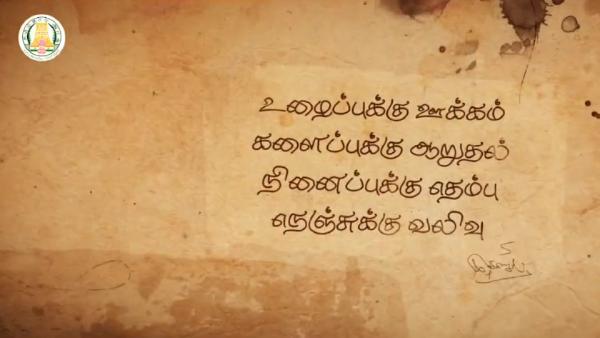 உழைப்புக்கு ஊக்கம்
களைப்புக்கு ஆறுதல்
நினைப்புக்கு தெம்பு
நெஞ்சுக்கு வலிவு